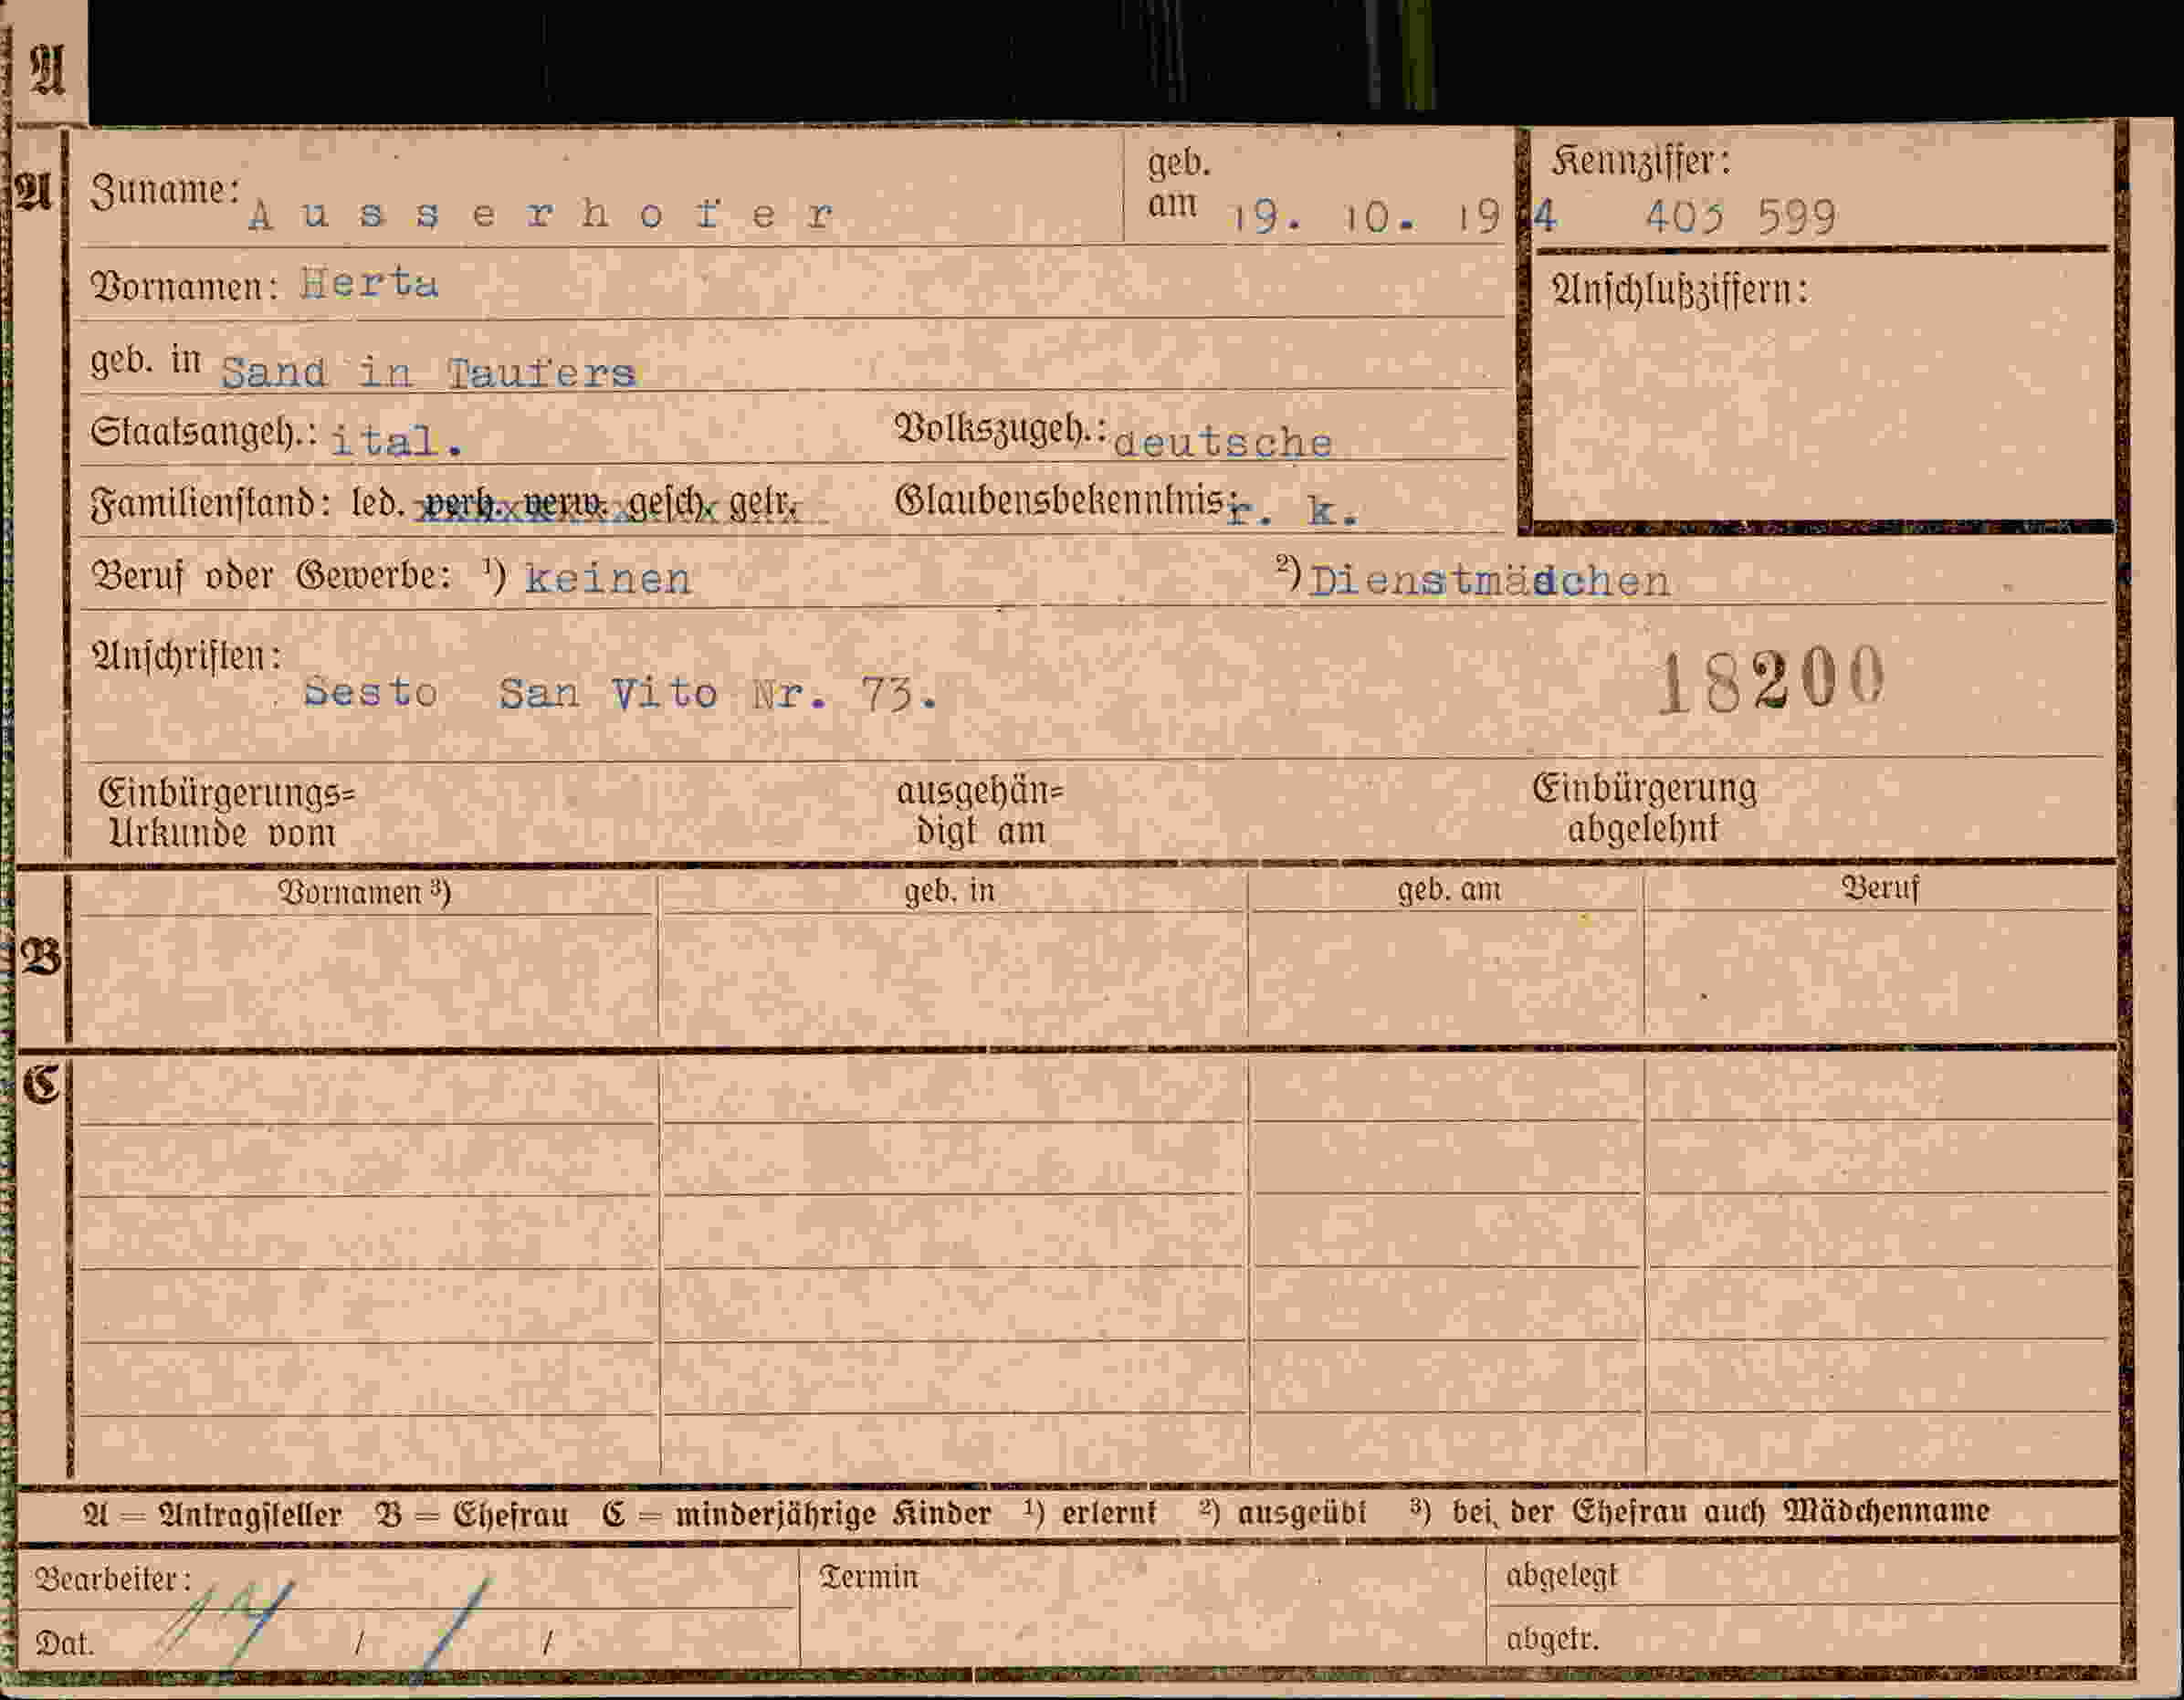 A
A
Zuname: Ausserhofer
geb. am 19. 10. 19 4
Kennziffer: 403 599
Vornamen: Herta
Anschlußziffern:
geb. in Sand in Taufers
Staatsangeh.: ital. Volkszugeh.: deutsche
Familienstand: led. verh. verw. gesch. getr. Glaubensbekenntnis: r. k.
Beruf oder Gewerbe: ¹) keinen ²) Dienstmädchen
Anschriften:
Sesto San Vito Nr. 73.
18200
Einbürgerungs= ausgehän= Einbürgerung
Urkunde vom digt am abgelehnt
B
Vornamen ³) geb. in geb. am Beruf
C
A = Antragsteller B = Ehefrau C = minderjährige Kinder ¹) erlernt ²) ausgeübt ³) bei der Ehefrau auch Mädchenname
Bearbeiter: Termin abgelegt
Dat. / / abgetr.